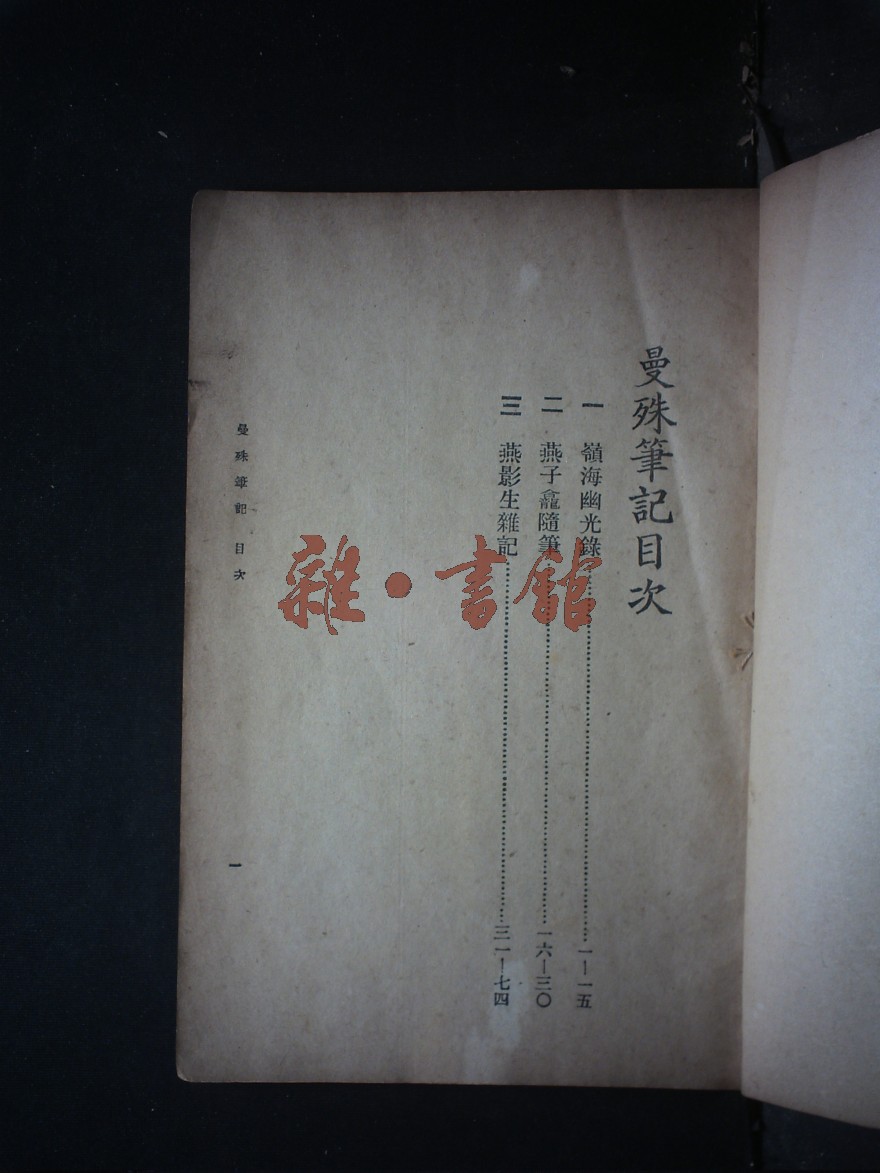 曼殊筆記目次
一 嶺海幽光錄……一—一五
二 燕子龕隨筆……一六—三〇
三 燕影生雜記……三一—七四
曼殊筆記 目次
一
雜·書館